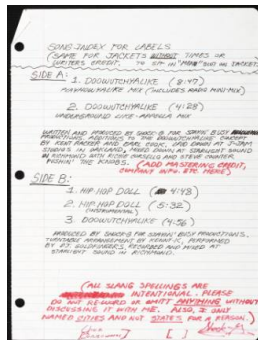 SONG INDEX FOR LABELS
(SAME FOR JACKETS WITHOUT TIMES OR
WRITERS CREDIT. TO SIT IN "MOON" SUIT ON JACKET)
SIDE A:
1. DOOWUTCHYALIKE (8:47)
MIX (INCLUDES RADIO MINI-MIX)
2. DOOWUTCHYALIKE (4:28)
UNDERGROUND LIKE-APPELLA MIX
WRITTEN AND PRODUCED BY SHOCK-G FOR STAYIN' BUSY
PRODUCTIONS. ADDITIONS TO THE DOOWUTCHYALIKE CONCEPT
BY KENT RACKER AND EARL COOK. LAID DOWN AT J-JAM
STUDIOS IN OAKLAND, MIXED DOWN AT STARLIGHT SOUND
IN RICHMOND WITH RICHIE AND STEVE COUNTER
PUSHIN' THE KNOBS. (ADD MASTERING CREDIT,
COMPANY INFO. ETC HERE)
SIDE B:
1. HIP HOP DOLL (4:43)
2. HIP HOP DOLL (5:32)
(INSTRUMENTAL)
3. DOOWUTCHYALIKE (4:56)
PRODUCED BY SHOCK-G FOR STAYIN' BUSY PRODUCTIONS.
TURNTABLE ARRANGEMENT BY KENNY-K, PERFORMED
BY RECORDED AND MIXED AT
STARLIGHT SOUND IN RICHMOND.
(ALL SLANG SPELLINGS ARE
INTENTIONAL. PLEASE
DO NOT RE-WORD OR OMITT ANYTHING WITHOUT
DISCUSSING IT WITH ME. ALSO, I ONLY
NAMED CITIES AND NOT STATES FOR A REASON.)